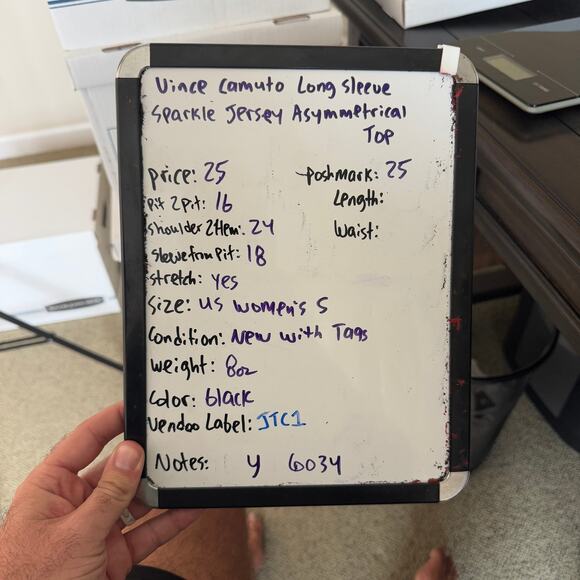 Vince Camuto Long Sleeve
Sparkle Jersey Asymmetrical
Top
price: 25
poshmark: 25
pit 2 pit: 16
Length:
shoulder 2 Hem: 24
Waist:
sleeve from pit: 18
stretch: yes
Size: US women's S
Condition: New with Tags
weight: 8oz
Color: black
Vendoo Label: JTC1
Notes: Y 6034